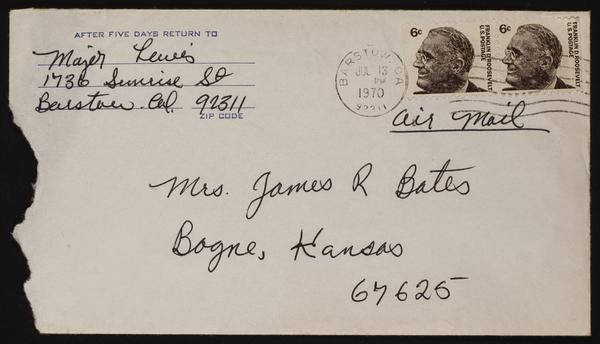 AFTER FIVE DAYS RETURN TO
Majer Lewis
1736 Sunrise St
Barstow Cal. 92311
ZIP CODE
BARSTOW, CA
JUL 13
PM
1970
92311
6c
FRANKLIN D. ROOSEVELT
U.S. POSTAGE
6c
FRANKLIN D. ROOSEVELT
U.S. POSTAGE
Air Mail
Mrs. James R Bates
Bogne, Kansas
67625